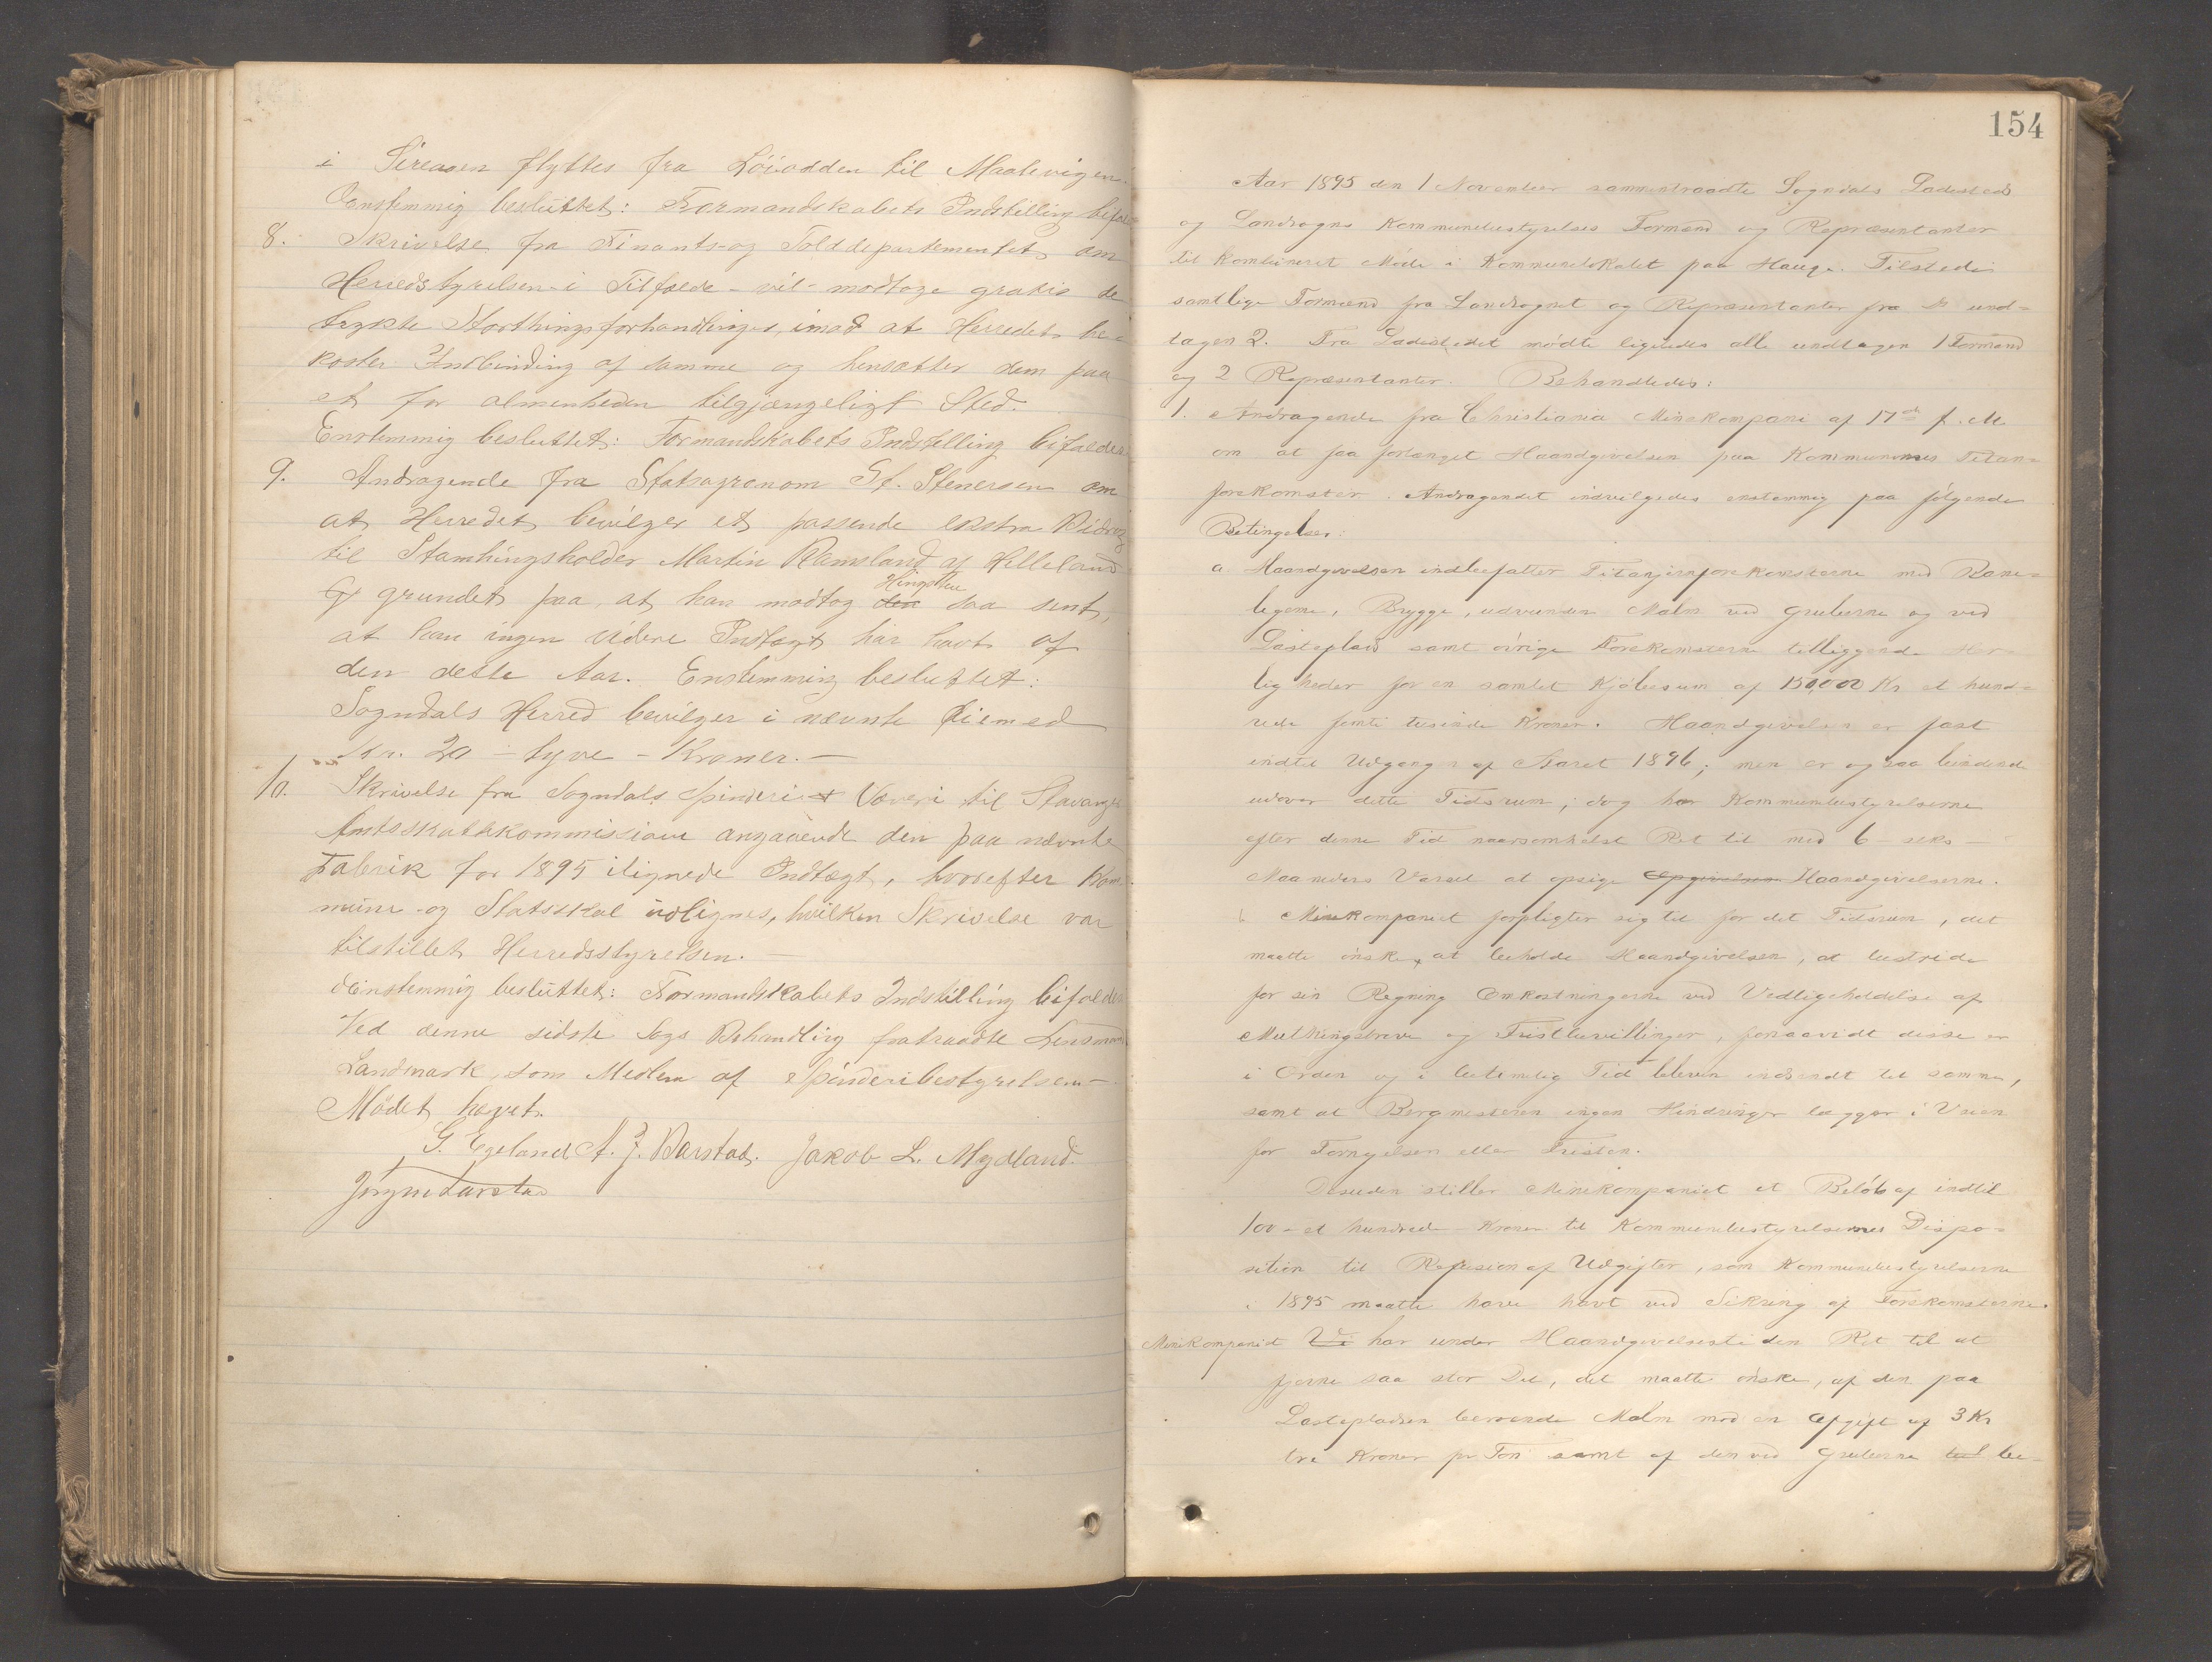 i Sireaaen flyttes fra Löiodden til Maalevigen.
Eenstemmig besluttet: Formandskabets Indstilling bifal-
8. Skrivelse fra Finants- og Tolddepartementet om
Herredstyrelsen i Tilfælde vil modtage gratis de
trykte Storthingsforhandlinger, imod at Herredet be-
koster Indbinding af samme og hensætter dem paa
et for almenheden tilgjængeligt Sted.
Enstemmig besluttet: Formandskabets Indstilling bifaldes.
9. Andragende fra Statsagronom St. Stenersen om
at Herredet bevilger et passende extra Bidrag
til Stamhingsholder Martin Ramsland af Helleland
grundet paa, at han modtog den Hingsten saa sent,
at han ingen videre Indtægt har havt af
den dette Aar. Enstemmig besluttet:
Sogndals Herred bevilger i nævnte Øiemed
Kr. 20 - tyve - Kroner. -
10. Skrivelse fra Sogndals Spinderi & Væveri til Stavanger
Amtsskattekommission angaaende den paa nævnte
Fabrik for 1895 ilignede Indtægt, hvorefter Kom-
mune- og Statsskat udlignes, hvilken Skrivelse var
tilstillet Herredsstyrelsen. -
Eenstemmig besluttet: Formandskabets Indstilling bifaldes
Ved denne sidste Sags Behandling fratraadte Lensmand
Landmark, som Medlem af Spinderibestyrelsen -
Mödet hævet.
G. Egeland A. J. Barstad. Jakob L. Mydland.
Jörgen
154
Aar 1895 den 1 November sammentraadte Sogndals Ladesteds
og Landsogns Kommunebestyrelses Formænd og Repræsentanter
til kombineret Möde i Kommunelokalet paa Hauge. Tilstede
samtlige Formænd fra Landsognet og Repræsentanter fra do und-
tagen 2. Fra Ladestedet mödte ligeledes alle undtagen 1 Formand
og 2 Repræsentanter. Behandledes:
1. Andragende fra Christiania Minekompani af 17de f. M.
om at faa forlænget Haandgivelsen paa Kommunernes Titan-
forekomster. Andragendet indvilgedes enstemmig paa følgende
Betingelser:
a. Haandgivelsen indbefatter Titanjernforekomsterne med Bane-
legeme, Brygge, udvunden Malm ved Gruberne og ved
Lasteplads samt övrige Forekomsterne tilliggende Her-
ligheder for en samlet Kjöbesum af 150,000 Kr et hund-
rede femti tusinde Kroner. Haandgivelsen er fast
indtil Udgangen af Aaret 1896; men er ogsaa bindende
udover dette Tidsrum; dog har Kommunebestyrelserne
efter denne Tid naarsomhelst Ret til med 6 - seks -
Maaneders Varsel at opsige Opgivelsen Haandgivelserne.
b Minekompaniet forpligter sig til for det Tidsrum, det
maatte önske, at beholde Haandgivelsen, at bestride
for sin Regning Omkostningerne ved Vedligeholdelse af
Muthingsbreve og Fristbevillinger, forsaavidt disse er
i Orden og i betimelig Tid bleven indsendt til samme,
samt at Bergmesteren ingen Hindringer lægger i Veien
for Fornyelsen eller Fristen.
Desuden stiller Minekompaniet et Belöb af indtil
100 - et hundrede Kroner til Kommunebestyrelsernes Dispo-
sition til Refusion af Udgifter, som Kommunebestyrelserne
i 1895 maatte have havt ved Sikring af Forekomsterne.
Minekompaniet Vi har under Haandgivelsestiden Ret til at
fjerne saa stor Del, det maatte önske, af den paa
Lastepladsen beroende Malm mod en Afgift af 3 Kr
tre Kroner pr Ton samt af den ved Gruberne be-